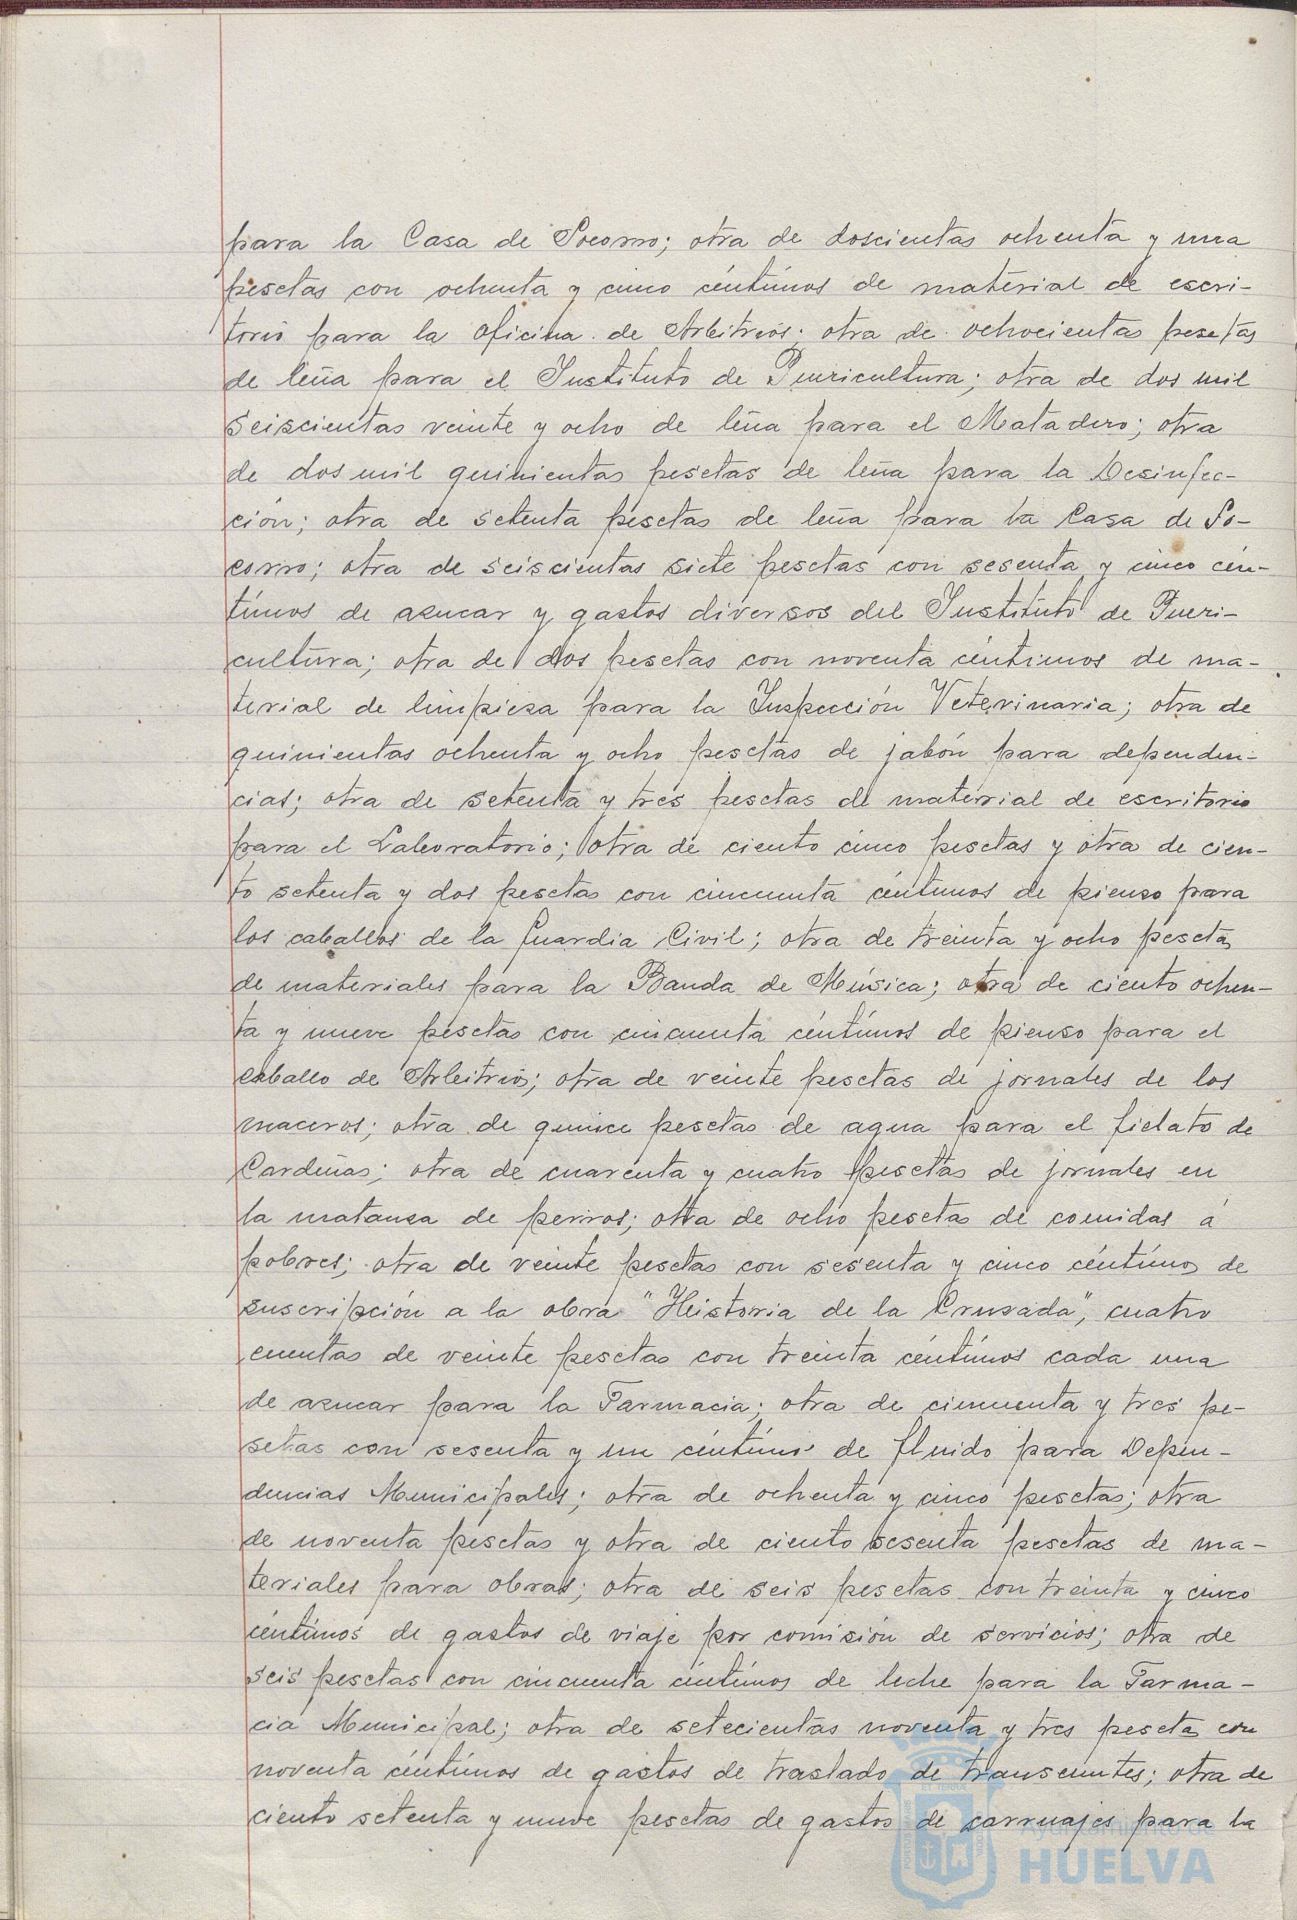 para la Casa de Socorro; otra de doscientas ochenta y una
pesetas con ochenta y cinco céntimos de material de escri-
torio para la oficina de Arbitrios; otra de ochocientas pesetas
de leña para el Instituto de Puericultura; otra de dos mil
seiscientas veinte y ocho de leña para el Matadero; otra
de dos mil quinientas pesetas de leña para la Desinfec-
ción; otra de setenta pesetas de leña para la Casa de So-
corro; otra de seiscientas siete pesetas con sesenta y cinco cén-
timos de azucar y gastos diversos del Instituto de Pueri-
cultura; otra de dos pesetas con noventa céntimos de ma-
terial de limpieza para la Inspección Veterinaria; otra de
quinientas ochenta y ocho pesetas de jabón para dependen-
cias; otra de setenta y tres pesetas de material de escritorio
para el Laboratorio; otra de ciento cinco pesetas y otra de cien-
to setenta y dos pesetas con cincuenta céntimos de pienso para
los caballos de la Guardia Civil; otra de treinta y ocho pesetas
de materiales para la Banda de Música; otra de ciento ochen-
ta y nueve pesetas con cincuenta céntimos de pienso para el
caballo de Arbitrios; otra de veinte pesetas de jornales de los
maceros; otra de quince pesetas de agua para el fielato de
Cardeñas; otra de cuarenta y cuatro pesetas de jornales en
la matanza de perros; otra de ocho pesetas de comidas á
pobres; otra de veinte pesetas con sesenta y cinco céntimos de
suscripción a la obra "Historia de la Cruzada", cuatro
cuentas de veinte pesetas con treinta céntimos cada una
de azucar para la Farmacia; otra de cincuenta y tres pe-
setas con sesenta y un céntimo de fluido para Depen-
dencias Municipales; otra de ochenta y cinco pesetas; otra
de noventa pesetas y otra de ciento sesenta pesetas de ma-
teriales para obras; otra de seis pesetas con treinta y cinco
céntimos de gastos de viaje por comisión de servicios; otra de
seis pesetas con cincuenta céntimos de leche para la Farma-
cia Municipal; otra de setecientas noventa y tres pesetas con
noventa céntimos de gastos de traslado de transeuntes; otra de
ciento setenta y nueve pesetas de gastos de carruajes para la
Ayuntamiento de
HUELVA